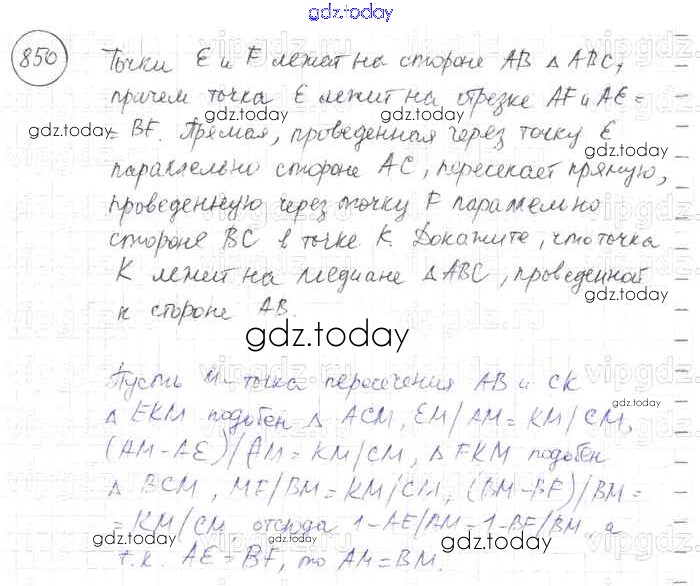 gdz.today
850 Точки E и F лежат на стороне AB △ ABC,
причем точка E лежит на отрезке AF и AE =
= BF. Прямая, проведенная через точку E
параллельно стороне AC, пересекает прямую,
проведенную через точку F параллельно
стороне BC в точке K. Докажите, что точка
K лежит на медиане △ ABC, проведенной
к стороне AB.
gdz.today
Пусть M - точка пересечения AB и CK
△ EKM подобен △ ACM, EM/AM = KM/CM,
(AM-AE)/AM = KM/CM, △ FKM подобен
△ BCM, MF/BM = KM/CM, (BM-BF)/BM =
= KM/CM, отсюда 1-AE/AM=1-BF/BM, а
т.к. AE = BF, то AM = BM.